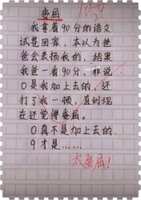 委屈
我拿着90分的语文
试卷回家，本以为爸
爸会表扬我的，结果
我爸一看90分，却说
0是我加上去的，还
打了我一顿，直到现
在还觉得委屈。
0真不是加上去的
9才是……
太委屈!